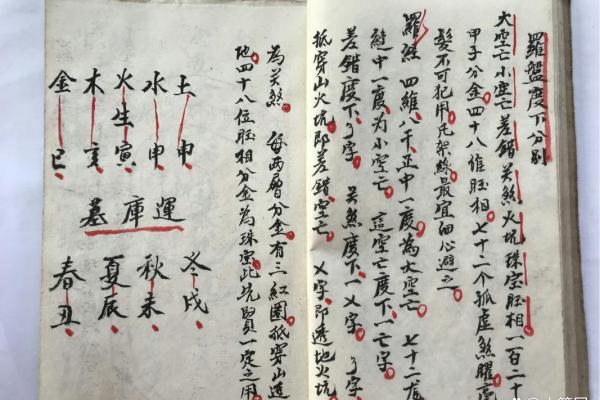 羅盤度下分別
大空亡小空亡差錯关煞火坑珠宝胚相一百二十
甲子分金四十八位胚相七十二个孤虛煞曜毫
髮不可犯用凡架線最宜細心避之
羅経 四維八干正中一度為大空亡 七十二龙
縫中一度为小空亡 這空亡度下一亡字
差錯度下了字 关煞度下一乂字 了字
抵穿山火坑即差錯空亡 乂字即透地火坑
為关煞 每两層分金有三紅圈抵穿山透
地四十八位胚相分金為珠宝此先賢一定之用
土申
水申
火生寅
木亥
金巳
墓庫運
冬戌
秋未
夏辰
春丑